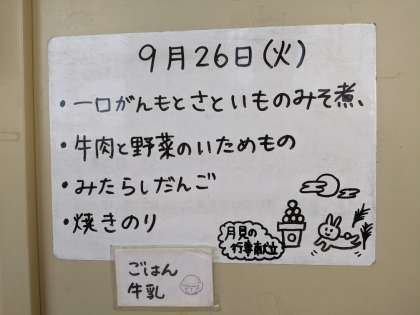 9月26日(火)
・一口がんもとさといものみそ煮、
・牛肉と野菜のいためもの
・みたらしだんご
・焼きのり
月見の
行事献立
ごはん
牛乳